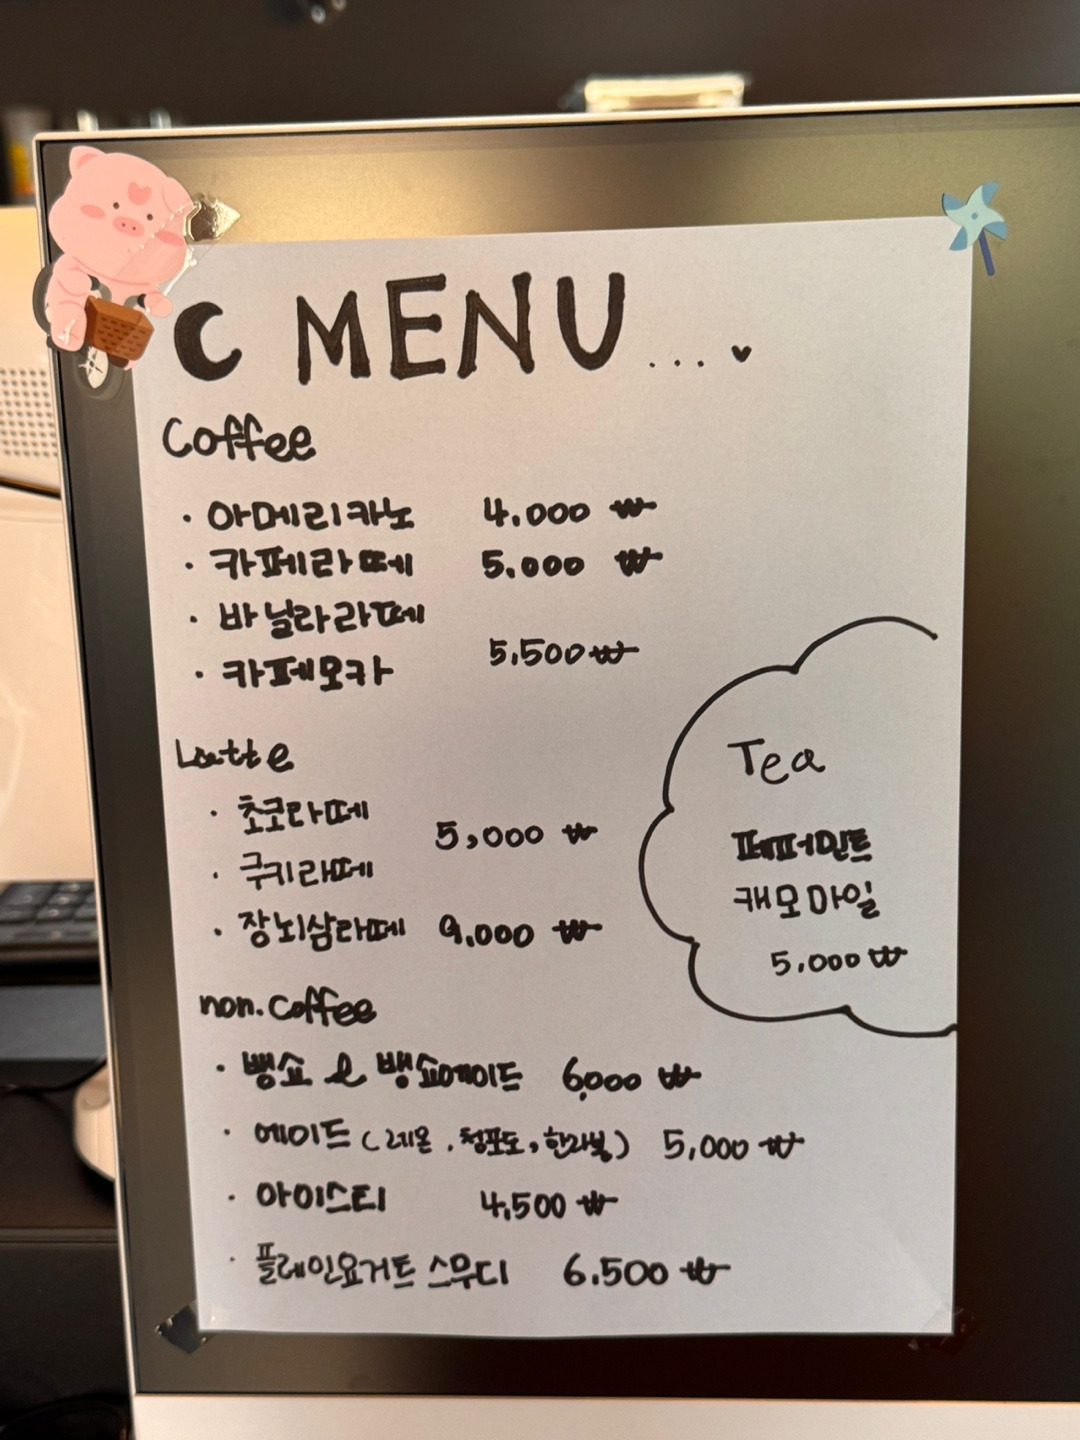 C MENU...♥
Coffee
· 아메리카노 4.000 ₩
· 카페라떼 5.000 ₩
· 바닐라라떼
5,500 ₩
· 카페모카
Latte
· 초코라떼
5,000 ₩
· 쿠키라떼
· 장뇌삼라떼 9.000 ₩
Tea
페퍼민트
캐모마일
5.000 ₩
non.coffee
· 뱅쇼 & 뱅쇼에이드 6,000 ₩
· 에이드 (레몬, 청포도, 한라봉) 5,000 ₩
· 아이스티 4,500 ₩
· 플레인요거트 스무디 6.500 ₩